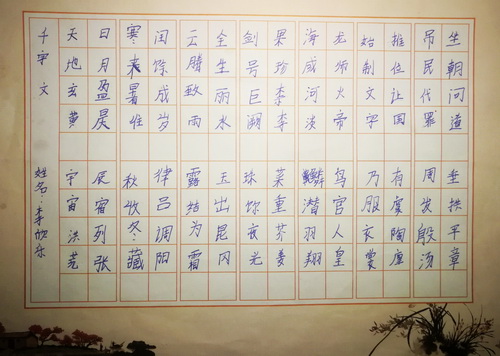 千字文 姓名:李欣乐
天地玄黄 宇宙洪荒
日月盈昃 辰宿列张
寒来暑往 秋收冬藏
闰馀成岁 律吕调阳
云腾致雨 露结为霜
全生丽水 玉出昆冈
剑号巨阙 珠称夜光
果珍李李 菜重芥姜
海咸河淡 鳞潜羽翔
龙师火帝 鸟官人皇
始制文字 乃服衣裳
推位让国 有虞陶唐
吊民伐罪 周发殷汤
坐朝问道 垂拱平章